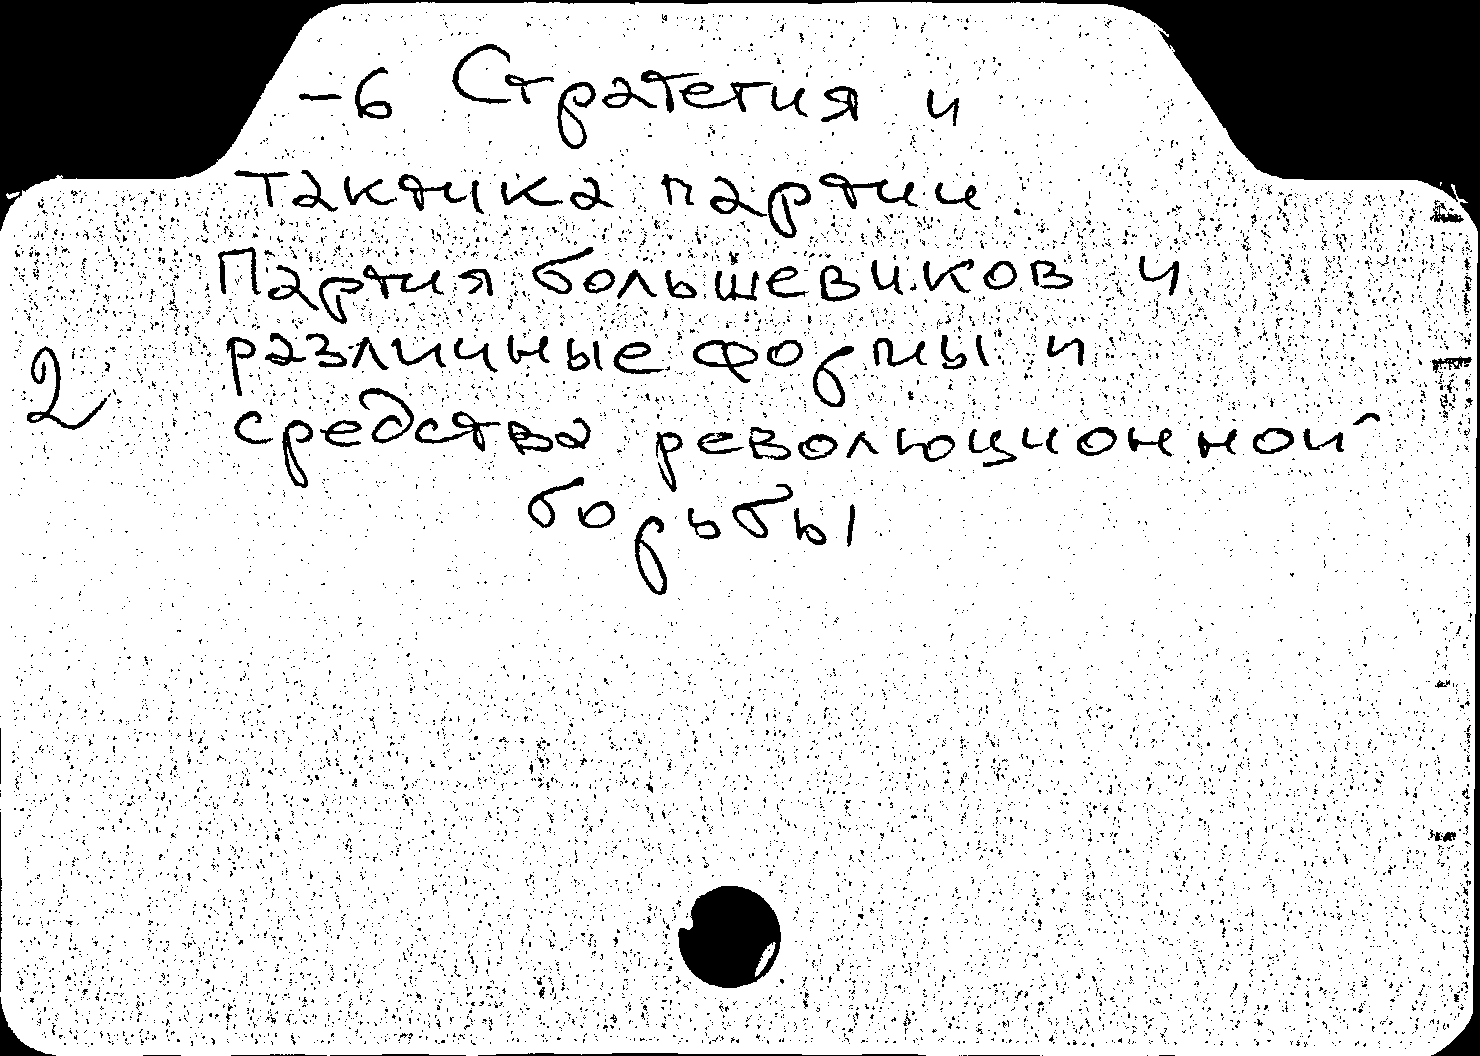 -6 Стратегия и
тактика партии.
Партия большевиков и
различные формы и
2
средства революционной
борьбы